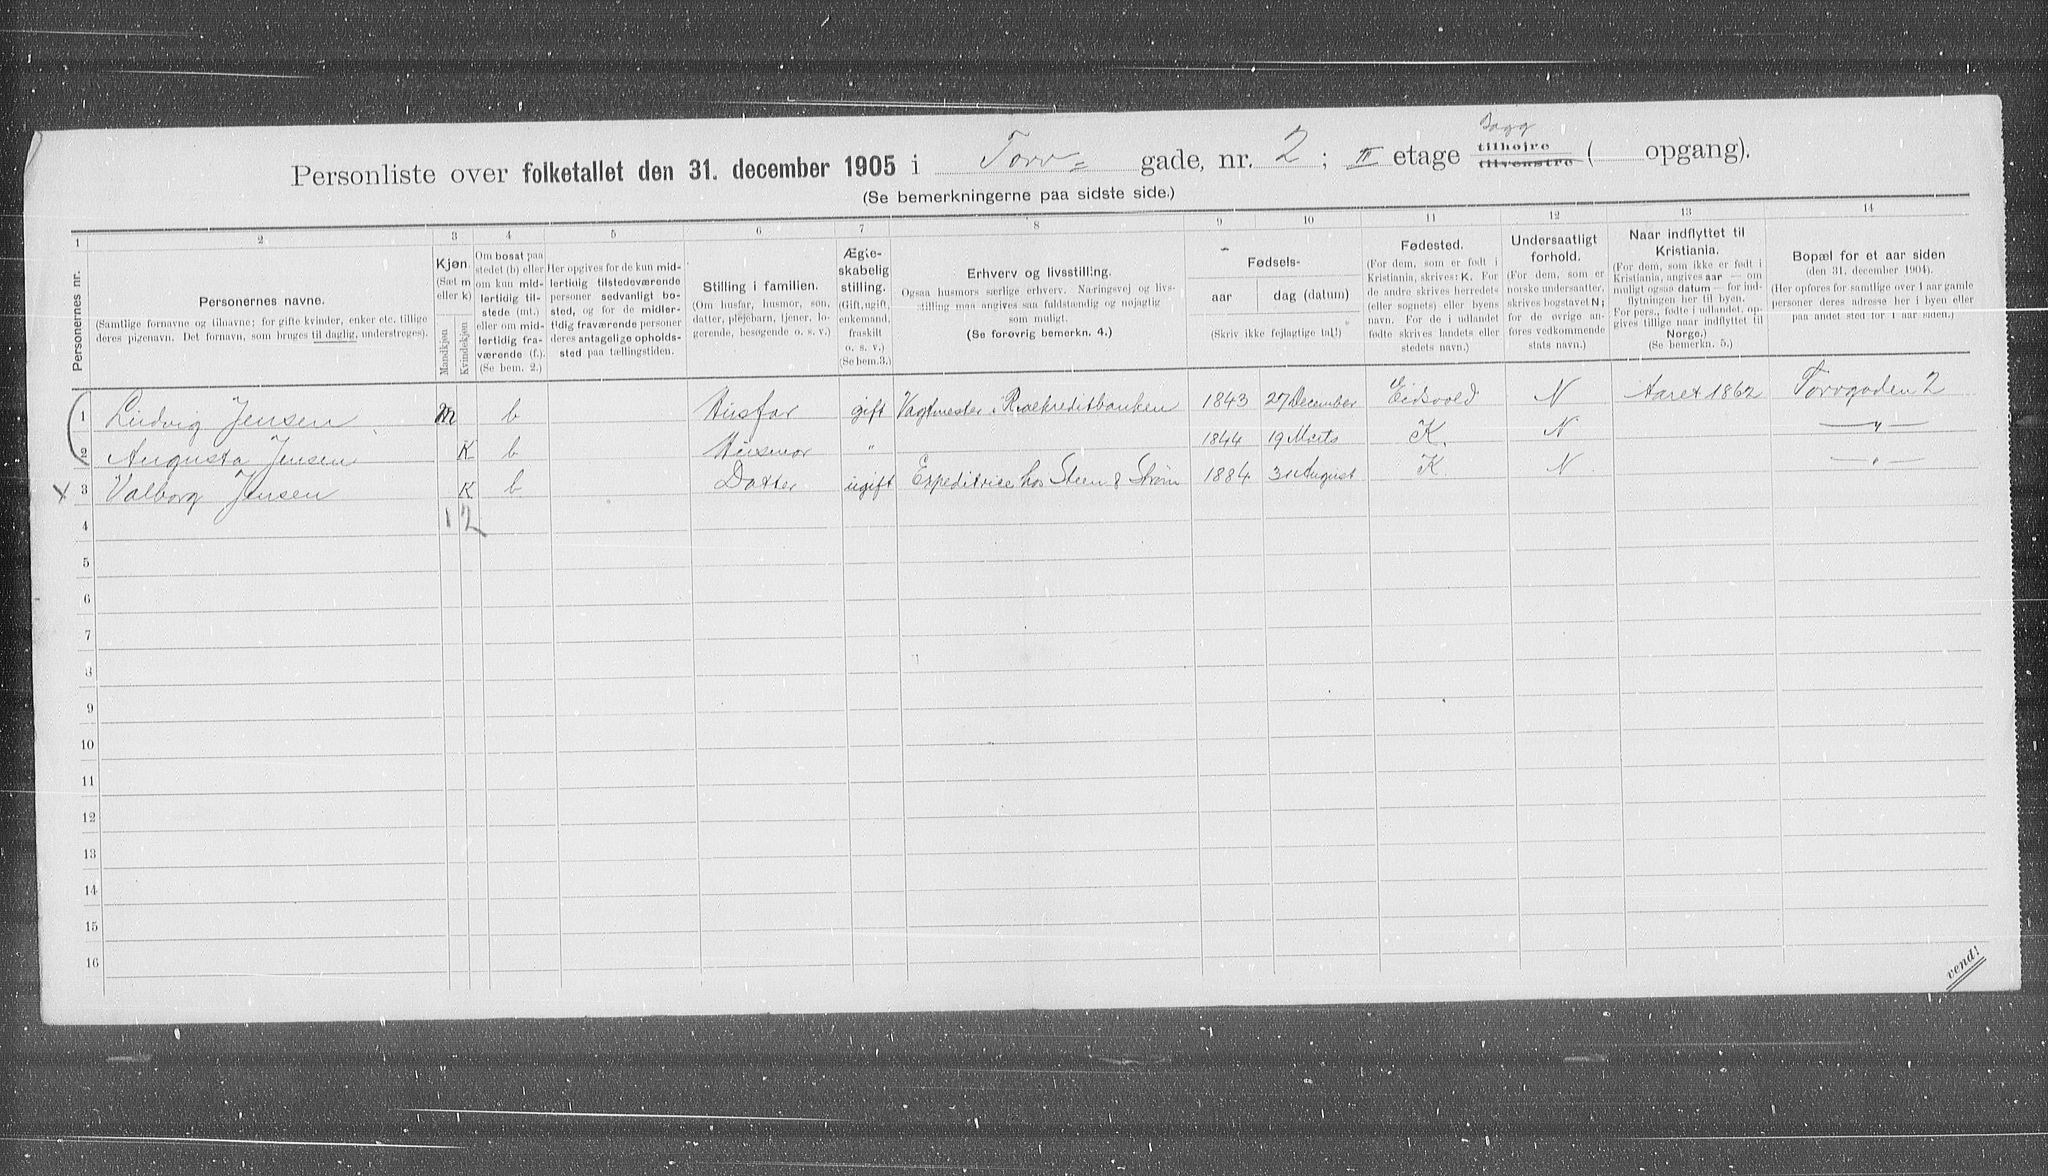 Personliste over folketallet den 31. december 1905 i Torv= gade, nr. 2 ; II etage tilhøjre tilvenstre ( opgang).
(Se bemerkningerne paa sidste side.)
1 2 3 4 5 6 7 8 9 10 11 12 13 14
Personernes nr.
Personernes navne.
(Samtlige fornavne og tilnavne; for gifte kvinder, enker etc. tillige
deres pigenavn. Det fornavn, som bruges til daglig, understreges).
Kjøn.
(Sæt m
eller k)
Mandkjøn
Kvindekjøn
Om bosat paa
stedet (b) eller
om kun mid-
lertidig til-
stede (mt.)
eller om mid-
lertidig fra-
værende (f.).
(Se bem. 2.)
Her opgives for de kun mid-
lertidig tilstedeværende
personer sedvanlig bo-
sted, og for de midler-
tidig fraværende personer
deres antagelige opholds-
sted paa tællingstiden.
Stilling i familien.
(Om husfar, husmor, søn,
datter, plejebarn, tjener, lo-
gerende, besøgende o. s. v.)
Ægte-
skabelig
stilling.
(Gift, ugift,
enkemand,
fraskilt
o. s. v.)
(Se bem.3.)
Erhverv og livsstilling.
Ogsaa husmors særlige erhverv. Næringsvej og livs-
stilling maa angives saa fuldstændig og nøjagtig
som muligt.
(Se forøvrig bemerkn. 4.)
Fødsels-
aar
dag (datum)
(Skriv ikke fejlagtige tal!)
Fødested.
(For dem, som er født i
Kristiania, skrives: K. For
de andre skrives herredets
(eller sognets) eller byens
navn. For de i udlandet
fødte skrives landets eller
stedets navn.)
Undersaatligt
forhold.
(For dem, som er
norske undersaatter,
skrives bogstavet N;
for de øvrige an-
føres vedkommende
stats navn.)
Naar indflyttet til
Kristiania.
(For dem, som ikke er født i
Kristiania, angives aar — om
muligt ogsaa datum — for ind-
flytningen her til byen.
For pers., fødte i udlandet, op-
gives tillige naar indflyttet til
Norge.)
(Se bemerkn. 5.)
Bopæl for et aar siden
(den 31. december 1904).
(Her opføres for samtlige over 1 aar gamle
personer deres adresse her i byen eller
paa andet sted for 1 aar siden.)
1 Ludvig Jensen m b Husfar gift Vagtmester i Realkreditbanken 1843 27 December Eidsvold N Aaret 1862 Torvgaden 2
2 Augusta Jensen K b Husmor " 1844 19 Marts K. N —"—
x 3 Valborg Jensen K b Datter ugift Expeditrice hos Steen & Strøm 1884 31 August K. N. —"—
4 1 2
5
6
7
8
9
10
11
12
13
14
15
16
vend!